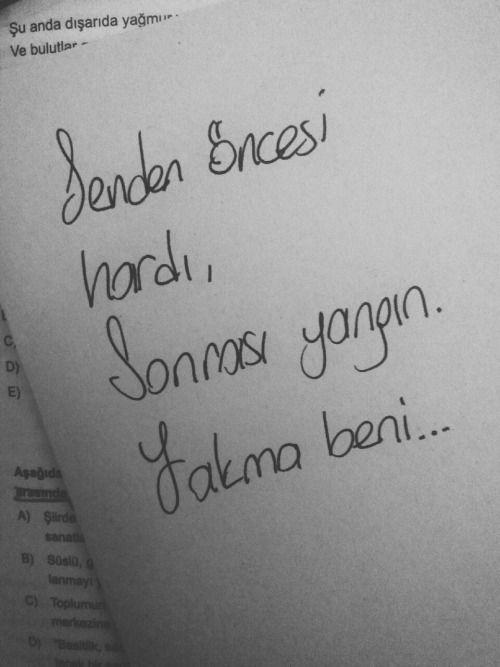 Şu anda dışarıda yağmur
Ve bulutlar
Senden öncesi
hardı,
Sonrası yangın.
Yakma beni...
C)
D)
E)
Aşağıda
arasında
A) Şiirde
sanatla
B) Süslü, g
lanmayı
C) Toplumun
merkezine
D) "Basitlik, sa